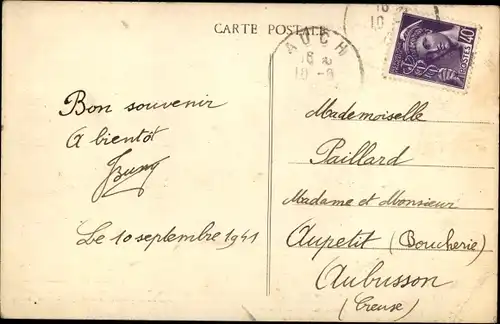 CARTE POSTALE
AUCH
16
10 -9
16
10
40
POSTES
Bon souvenir
A bientôt
Le 10 septembre 1941
Mademoiselle
Paillard
Madame et Monsieur
Aupetit (Boucherie)
Aubusson
(Creuse)